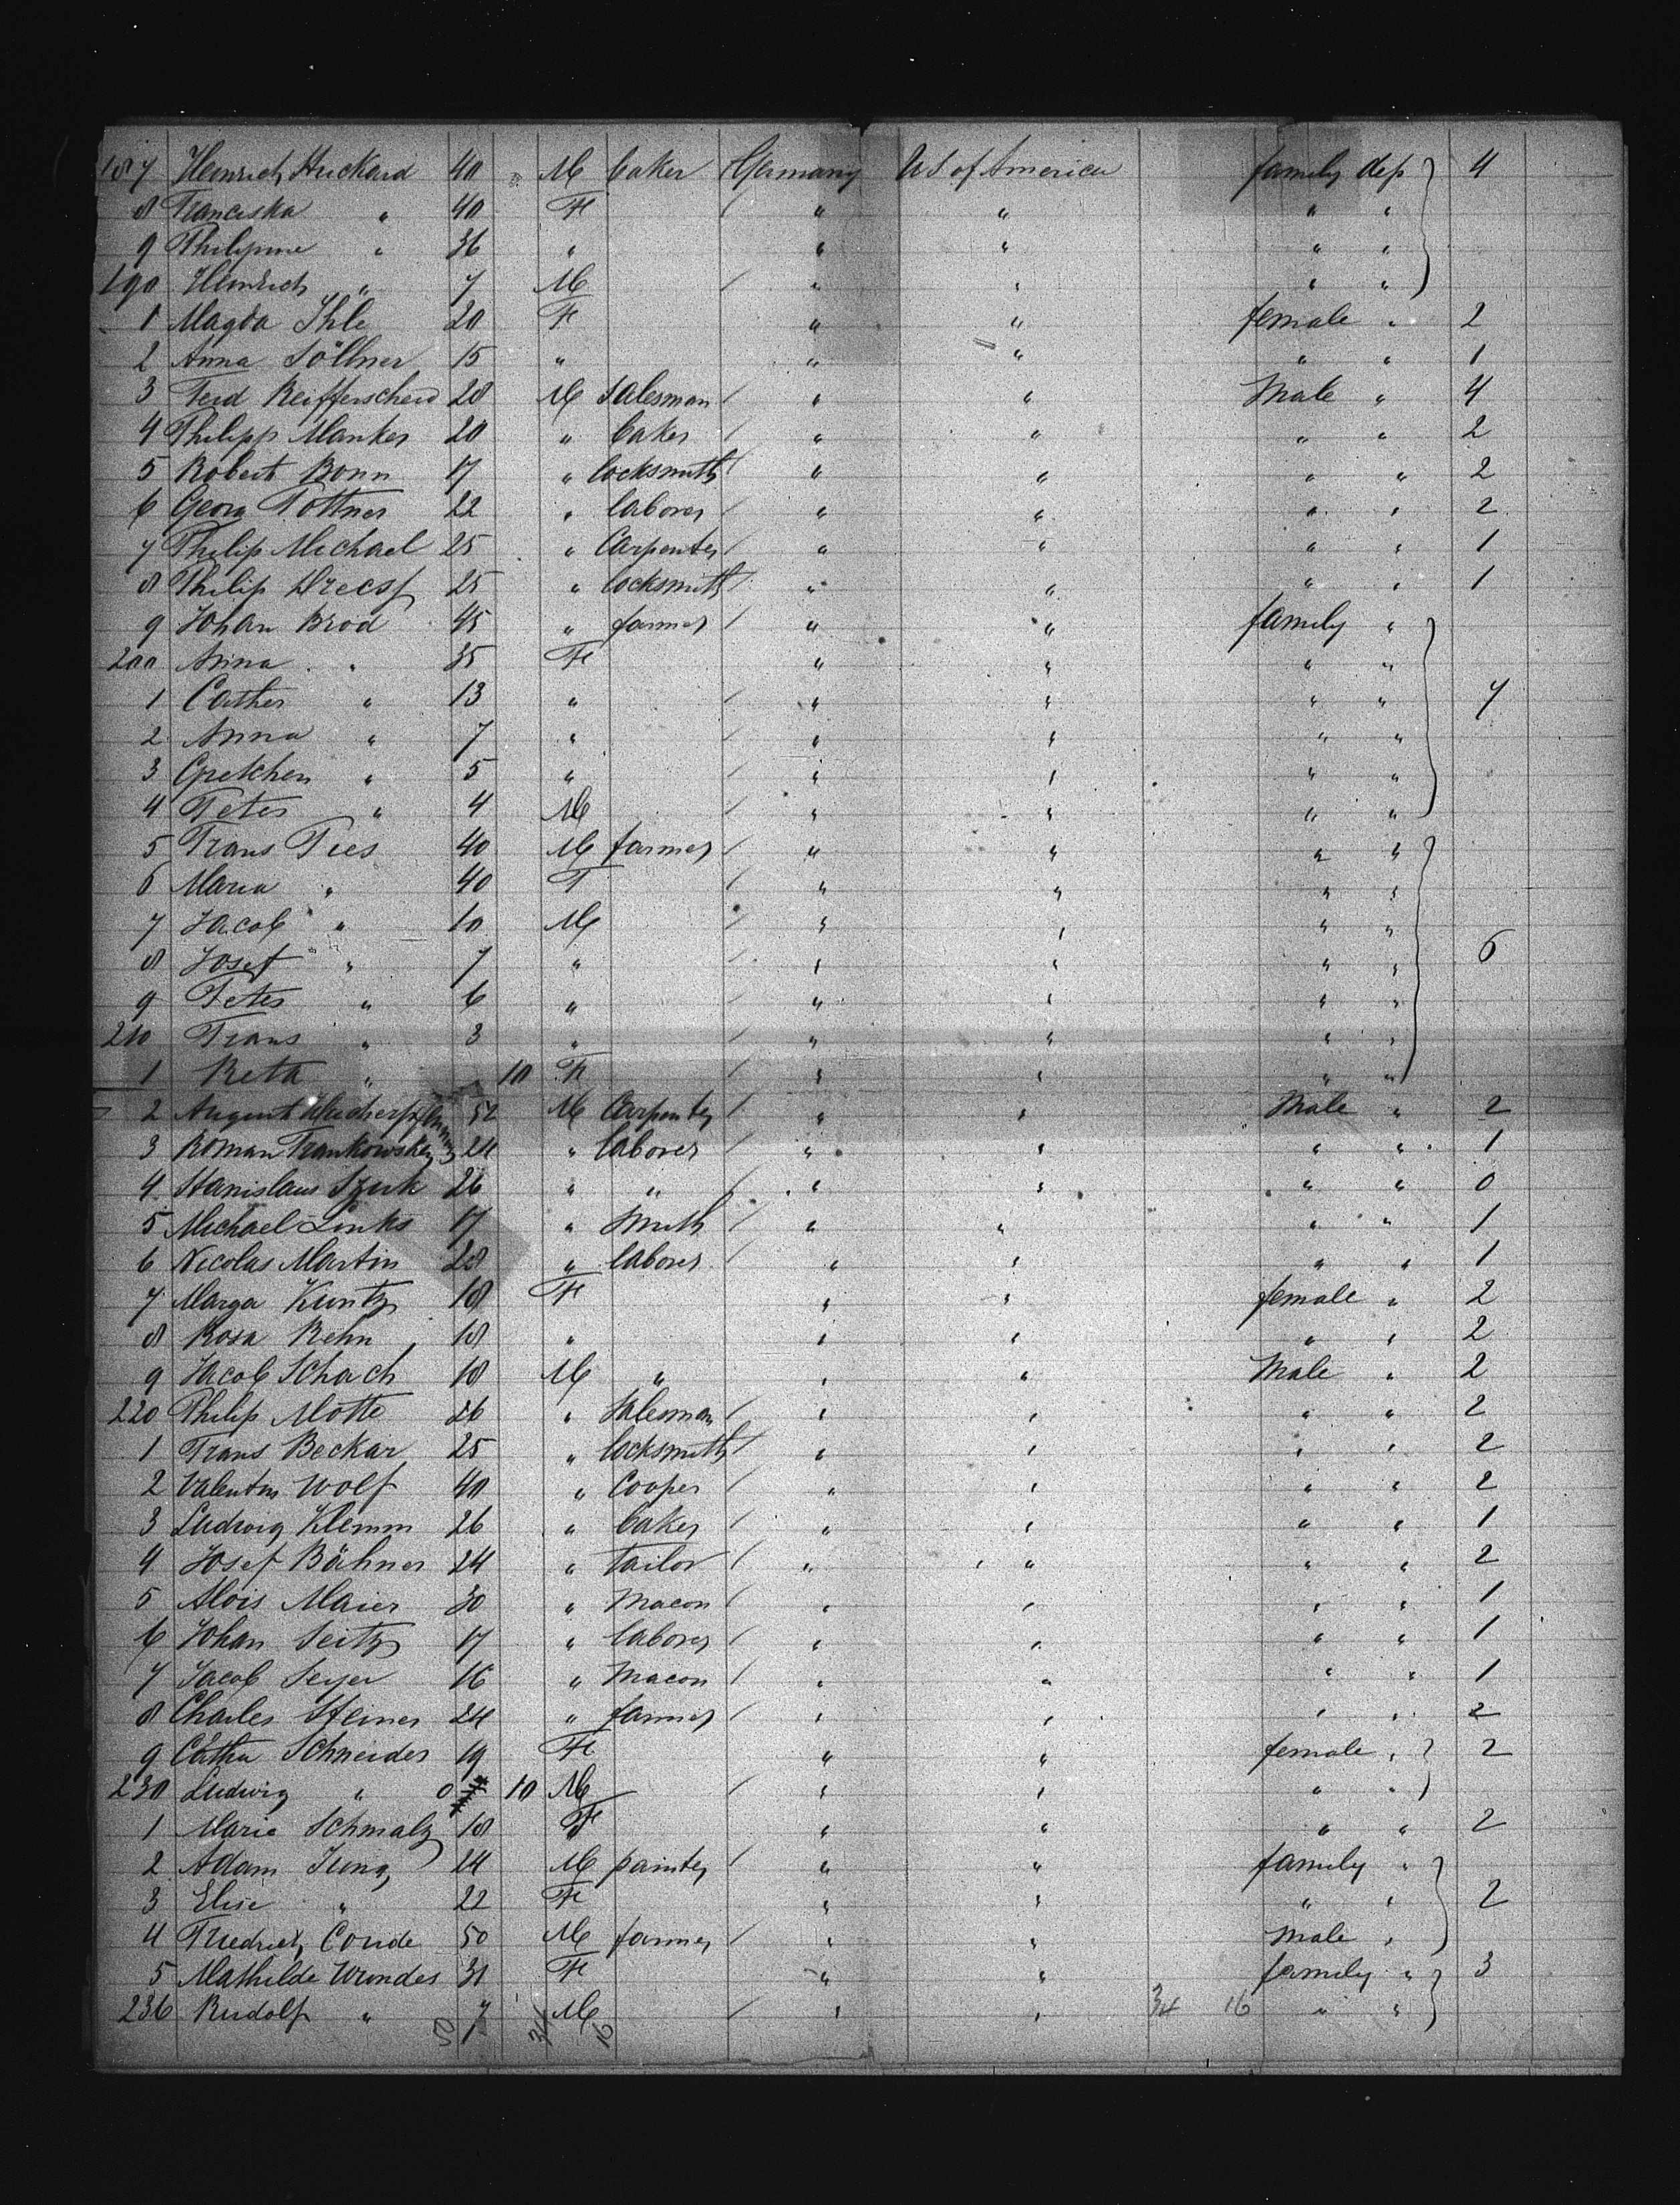 187 Heinrich Huckard 40 M baker Germany US of America family dep 4
8 Franciska " 40 F " " " "
9 Philippine " 36 " " " " "
190 Heinrich " 7 M " " " "
1 Magda Ihle 20 F " " female " 2
2 Anna Söllner 15 " " " " " 1
3 Ferd Reifferscheid 28 M Salesman " " Male " 4
4 Philipp Manker 20 " baker " " " " 2
5 Robert Bonn 17 " locksmith " " " " 2
6 Georg Pottner 22 " laborer " " " " 2
7 Philip Michael 25 " Carpenter " " " " 1
8 Philip 25 " locksmith " " " " 1
9 Johan Brod 45 " farmer " " family "
200 Anna " 35 F " " " "
1 Cather " 13 " " " " " 7
2 Anna " 7 " " " " "
3 Gretchen " 5 " " " " "
4 Peter " 4 M " " " "
5 Frans Pies 40 M farmer " " " "
6 Maria " 40 F " " " "
7 Jacob " 10 M " " " "
8 Josef " 7 " " " " " 6
9 Peter " 6 " " " " "
210 Frans " 3 " " " " "
1 Reta " 10 F " " " "
2 August 52 M Carpenter " " Male " 2
3 Roman Frankowsky 24 " laborer " " " " 1
4 Stanislaus Szuk 26 " " " " " " 0
5 Michael Links 17 " Smith " " " " 1
6 Nicolas Martin 28 " laborer " " " " 1
7 Marga Kuntz 18 F " " female " 2
8 Rosa Rehn 18 " " " " " 2
9 Jacob Schach 18 M " " " Male " 2
220 Philip Motte 26 " Salesman " " " " 2
1 Frans Beckar 25 " locksmith " " " " 2
2 Valentin Wolf 40 " Cooper " " " " 2
3 Ludwig Klemm 26 " baker " " " " 1
4 Josef Bähner 24 " tailor " " " " 2
5 Alois Maier 30 " Macon " " " " 1
6 Johan Seitz 17 " laborer " " " " 1
7 Jacob Seyer 16 " Macon " " " " 1
8 Charles Steiner 24 " farmer " " " " 2
9 Catha Schneider 19 F " " female " 2
230 Ludwig " 0 10 M " " " "
1 Marie Schmalz 18 F " " " " 2
2 Adam Jung 24 M painter " " family "
3 Elise " 22 F " " " " 2
4 Friedrich Conde 50 M farmer " " Male "
5 Mathilde Wundes 31 F " " family " 3
236 Rudolf " 7 M " " 34 16 " "
50 34 16